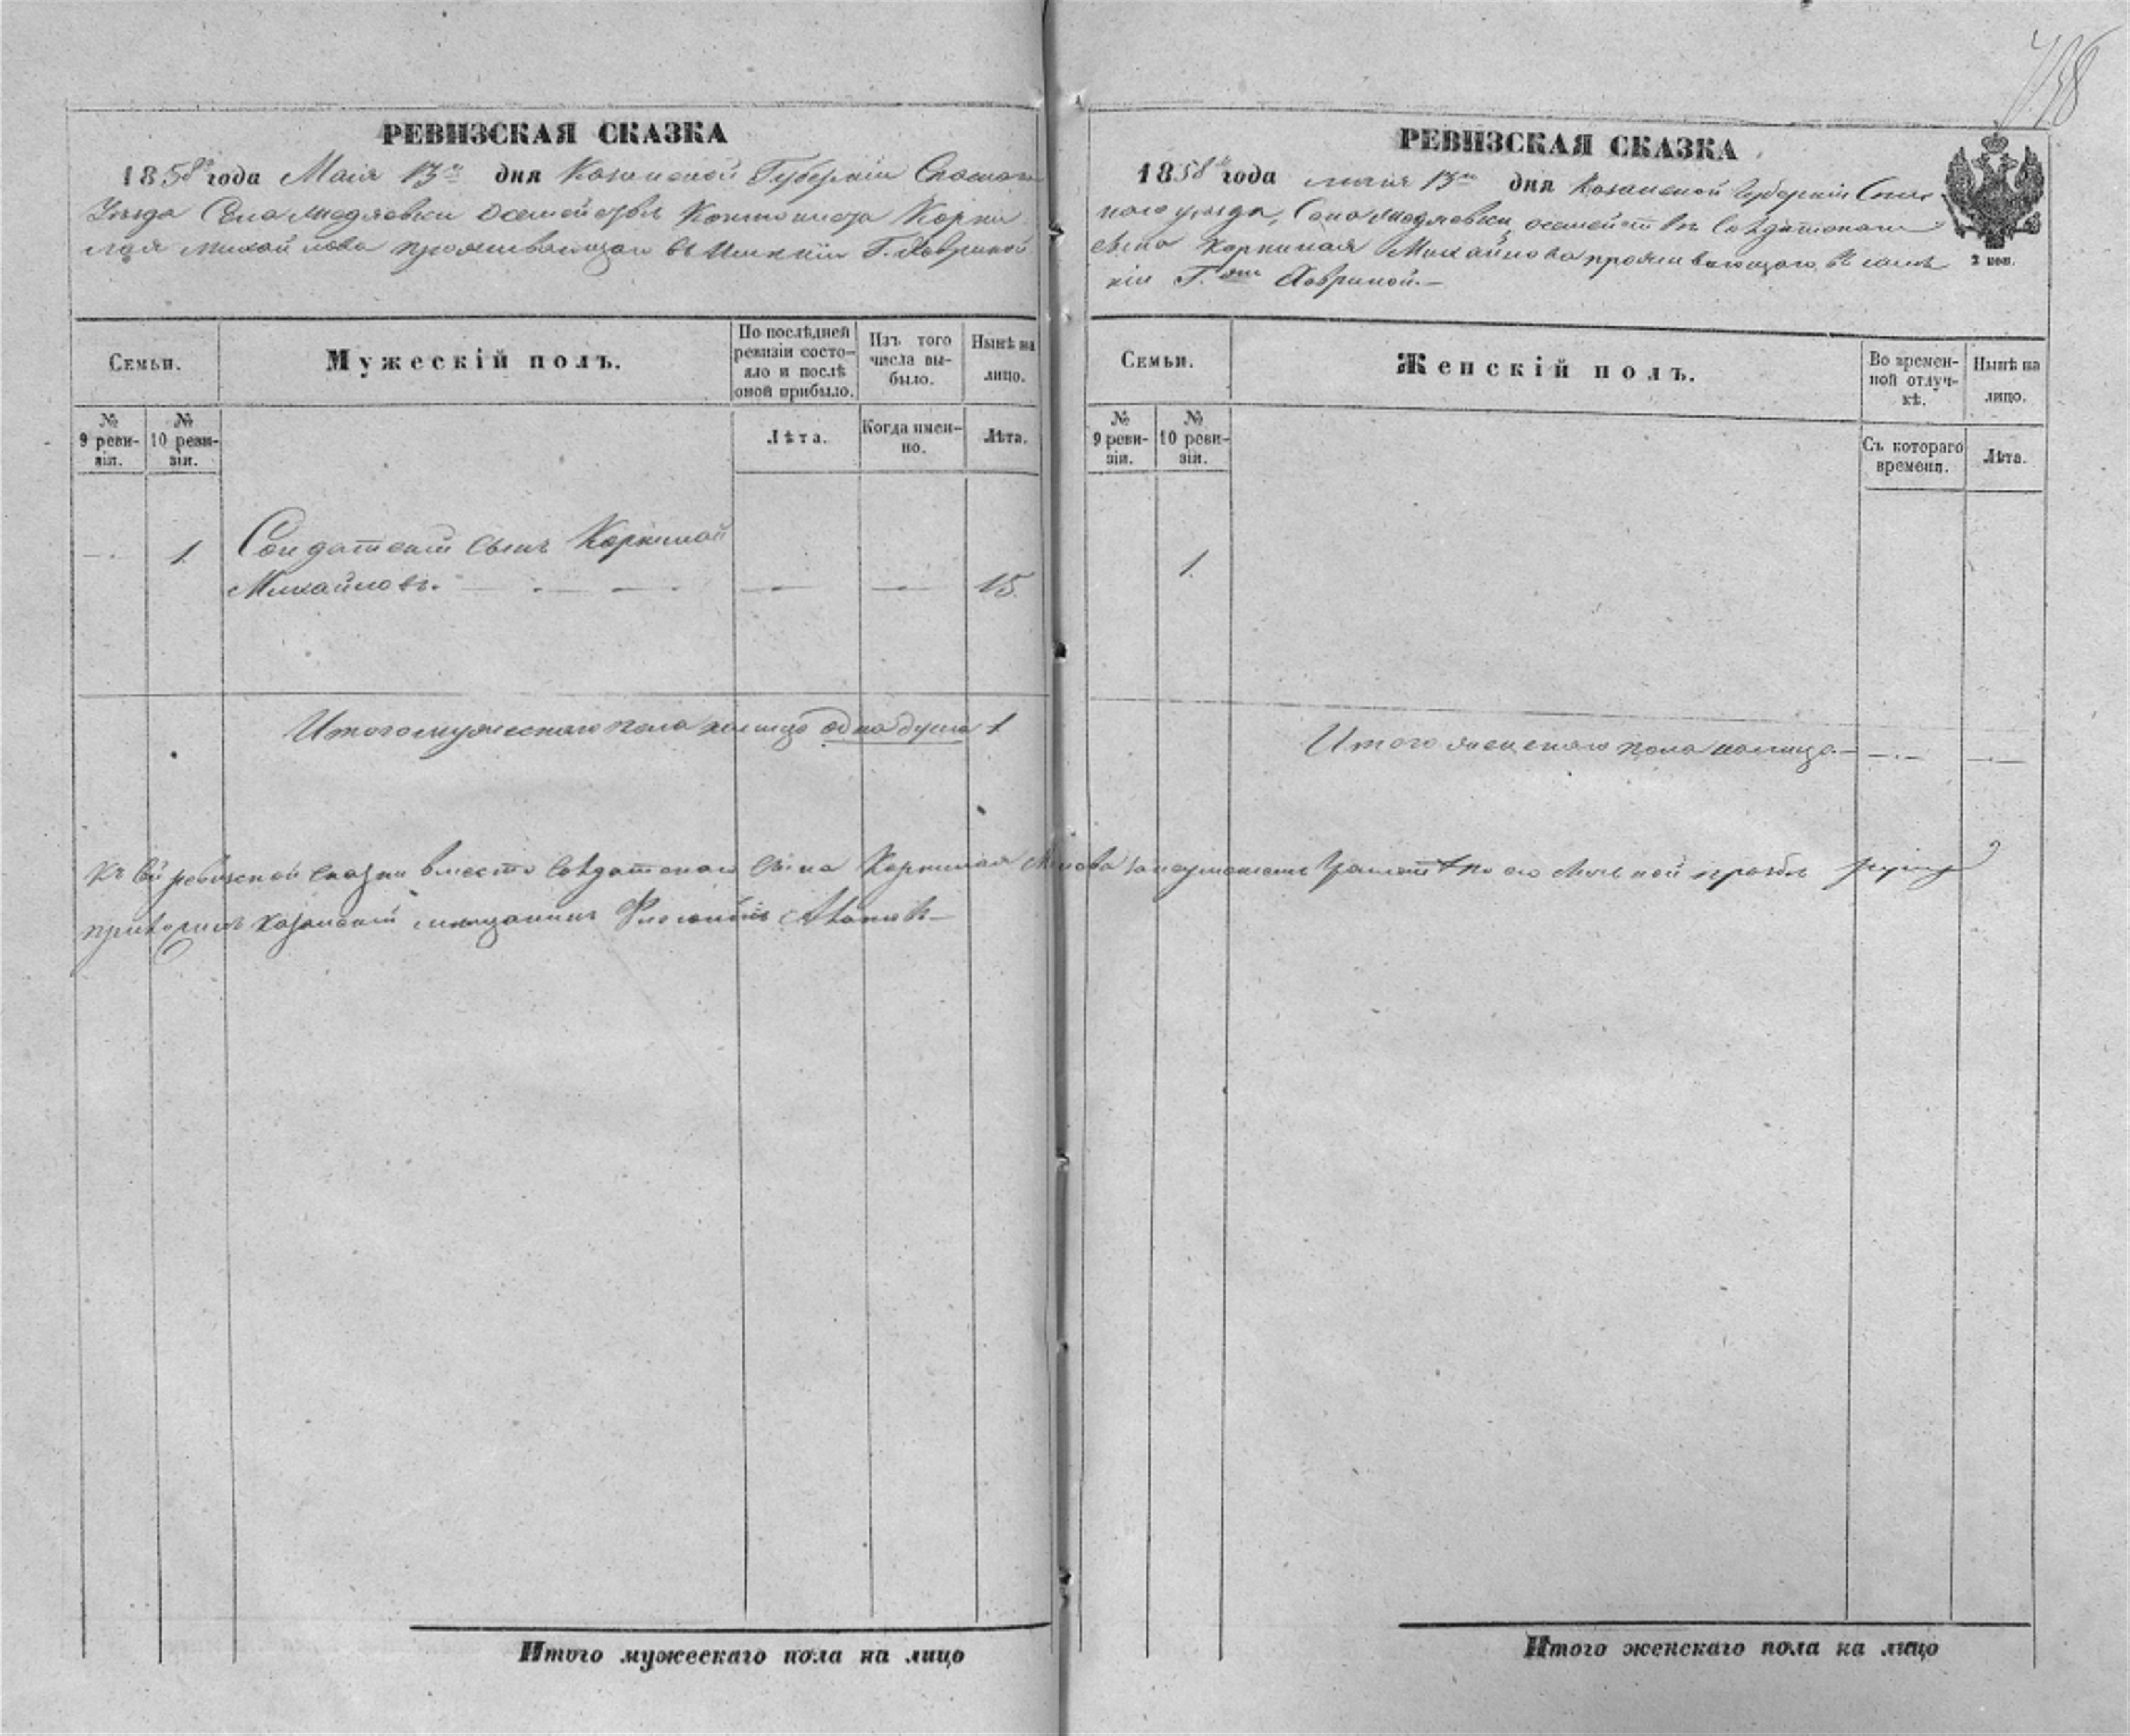 РЕВИЗСКАЯ СКАЗКА
1858го года Маія 13го дня Казанской Губерніи Спаскаго
Уезда Села Мидяевки о семействе Кантониста Корни
лая Михайлова проживающаго въ Имении Г. Ховриной
Семьи.
Мужескій полъ.
По последней ревизіи состо-
яло и послѣ
оной прибыло.
Изъ того
числа вы-
было.
Нынѣ на
лицо.
№
9 реви-
зіи.
№
10 реви-
зіи.
Лѣта.
Когда имен-
но.
Лѣта.
1. Солдатский сынъ Корнилай
Михайловъ. 15.
Итого мужескаго пола налицо одна душа 1
Къ сей ревизской сказки вместо Солдатскаго сына Корнилая
приложилъ казанский мещанинъ
Итого мужескаго пола на лицо
738
РЕВИЗСКАЯ СКАЗКА
1858го года маия 13го дня Казанской Губерніи Спас
каго уезда, Села Мидяевки, о семействе Солдатскаго
сына Корнилая Михайлова проживающаго, въ име
ніи Г. Ховриной.—
2 коп.
Семьи.
Женскій полъ.
Во времен-
ной отлуч-
кѣ.
Нынѣ на
лицо.
№
9 реви-
зіи.
№
10 реви-
зіи.
Съ котораго
времени.
Лѣта.
1.
Итого женскаго пола налицо.—
по его личной просьбе руку
Итого женскаго пола на лицо